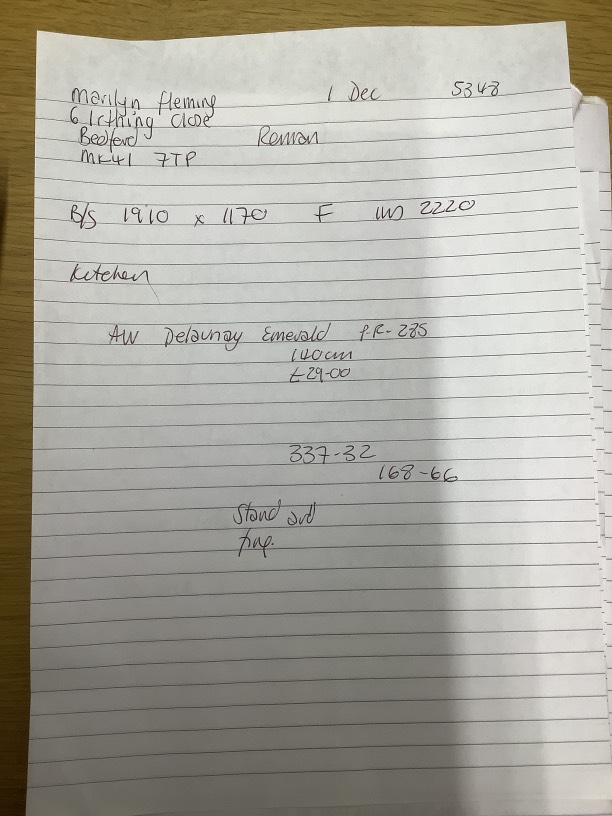 Marilyn Fleming 1 Dec 5348
6 Irthing Close
Bedford Roman
MK41 7TP
B/S 1910 x 1170 F 2220
Kitchen
AW Delaunay Emerald P.R- 285
140cm
£29-00
337-32
168-66
Stand